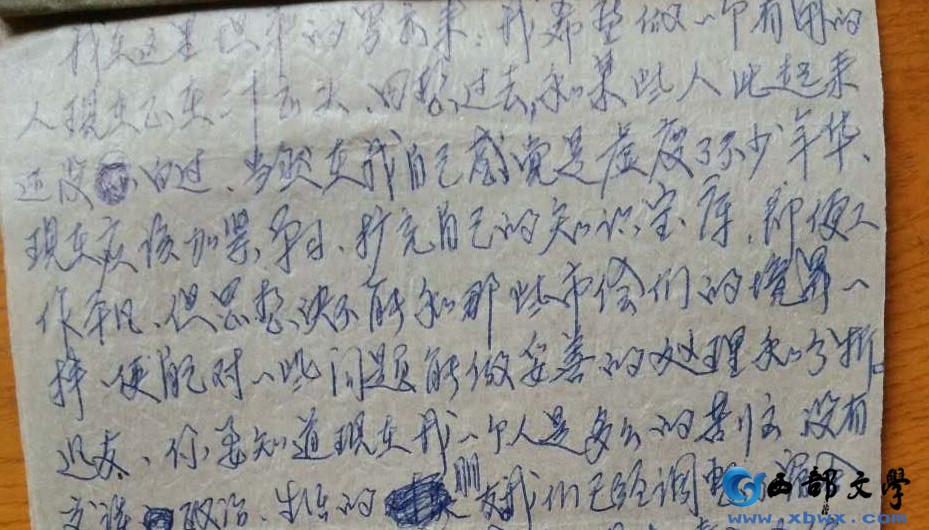 我在这里是暂的 来：我希望做一个有用的
人现在正在二十 头、回想过去，和某些人比起来
还没 白过、当然在我自己感觉是虚度了不少年华、
现在应该加紧学习、扩充自己的知识宝库，即使工
作平凡、但思想决不能和那些市侩们的境界一
样、使能对一些问题能做妥善的处理和分析。
迅友、你要知道现在我一个人是多么的苦恼 没有
谈 政治、生活的 朋友我们已经调整
西部文学
www.xbwx.com